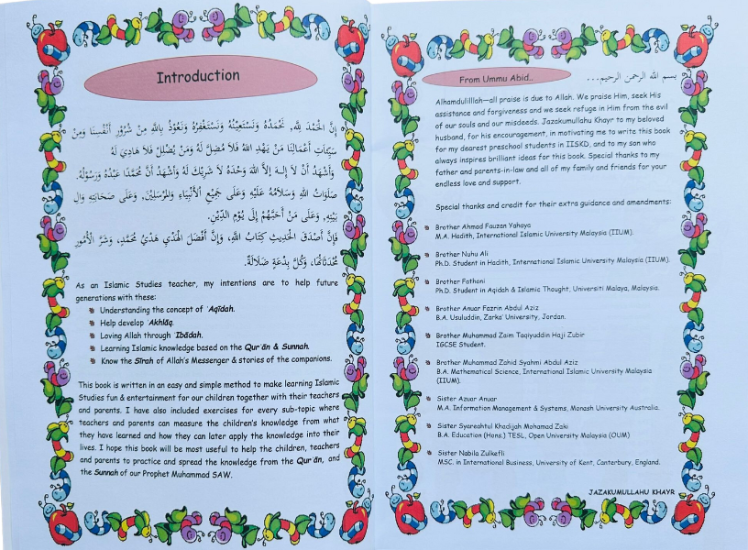 Introduction
إِنَّ الْحَمْدَ لِلَّهِ، نَحْمَدُهُ وَنَسْتَعِينُهُ وَنَسْتَغْفِرُهُ وَنَعُوذُ بِاللَّهِ مِنْ شُرُوْرِ أَنْفُسِنَا وَمِنْ
سَيِّئَاتِ أَعْمَالِنَا مَنْ يَهْدِ اللَّهُ فَلَا مُضِلَّ لَهُ وَمَنْ يُضْلِلْ فَلَا هَادِيَ لَهُ
وَأَشْهَدُ أَنْ لَا إِلَـهَ إِلَّا اللَّهُ وَحْدَهُ لَا شَرِيْكَ لَهُ وَأَشْهَدُ أَنَّ مُحَمَّدًا عَبْدُهُ وَرَسُوْلُهُ.
صَلَوَاتُ اللَّهِ وَسَلَامُهُ عَلَيْهِ وَعَلَى جَمِيْعِ الْأَنْبِيَاءِ وَالْمُرْسَلِيْنَ، وَعَلَى صَحَابَتِهِ وَآلِ
بَيْتِهِ, وَعَلَى مَنْ أَحَبَّهُمْ إِلَى يَوْمِ الدِّيْنِ.
فَإِنَّ أَصْدَقَ الْحَدِيثِ كِتَابُ اللَّهِ، وَإِنَّ أَفْضَلَ الْهَدْيِ هَدْيُ مُحَمَّدٍ، وَشَرَّ الْأُمُورِ
مُحْدَثَاتُهَا، وَكُلَّ بِدْعَةٍ ضَلَالَةٌ.
As an Islamic Studies teacher, my intentions are to help future
generations with these:
Understanding the concept of 'Aqīdah.
Help develop 'Akhlāq.
Loving Allah through 'Ibādah.
Learning Islamic knowledge based on the Qur'ān & Sunnah.
Know the Sīrah of Allah's Messenger & stories of the companions.
This book is written in an easy and simple method to make learning Islamic
Studies fun & entertainment for our children together with their teachers
and parents. I have also included exercises for every sub-topic where
teachers and parents can measure the children's knowledge from what
they have learned and how they can later apply the knowledge into their
lives. I hope this book will be most useful to help the children, teachers
and parents to practice and spread the knowledge from the Qur'ān, and
the Sunnah of our Prophet Muhammad SAW.
From Ummu Abid..
بسم الله الرحمن الرحيم...
Alhamdulilllah—all praise is due to Allah. We praise Him, seek His
assistance and forgiveness and we seek refuge in Him from the evil
of our souls and our misdeeds. Jazakumullahu Khayr to my beloved
husband, for his encouragement, in motivating me to write this book
for my dearest preschool students in IISKD, and to my son who
always inspires brilliant ideas for this book. Special thanks to my
father and parents-in-law and all of my family and friends for your
endless love and support.
Special thanks and credit for their extra guidance and amendments:
Brother Ahmad Fauzan Yahaya
M.A. Hadith, International Islamic University Malaysia (IIUM).
Brother Nuhu Ali
Ph.D. Student in Hadith, International Islamic University Malaysia (IIUM).
Brother Fathani
Ph.D. Student in Aqidah & Islamic Thought, Universiti Malaya, Malaysia.
Brother Anuar Fazrin Abdul Aziz
B.A. Usuluddin, Zarka' University, Jordan.
Brother Muhammad Zaim Taqiyuddin Haji Zubir
IGCSE Student.
Brother Muhammad Zahid Syahmi Abdul Aziz
B.A. Mathematical Science, International Islamic University Malaysia
(IIUM).
Sister Azuar Anuar
M.A. Information Management & Systems, Monash University Australia.
Sister Syareahtul Khadijah Mohamad Zaki
B.A. Education (Hons.) TESL, Open University Malaysia (OUM)
Sister Nabila Zulkefli
MSC. in International Business, University of Kent, Canterbury, England.
JAZAKUMULLAHU KHAYR